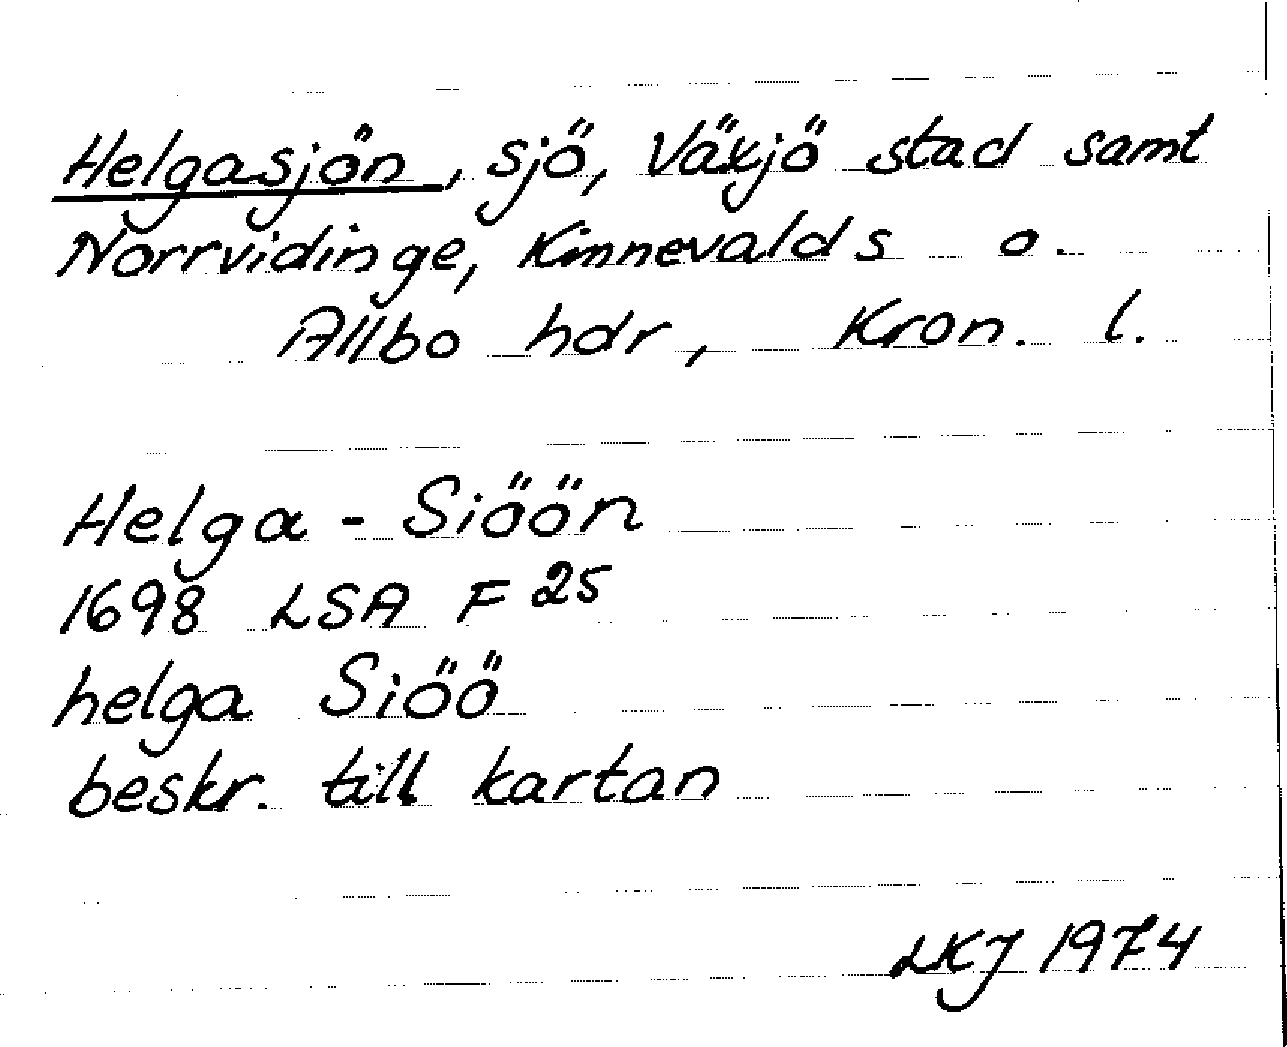 Helgasjön, sjö, Växjö stad samt
Norrvidinge, Kinnevalds o.
Allbo hdr, Kron. l.
Helga - Siöön
1698 LSA F 25
helga Siöö
beskr. till kartan
LKJ 1974